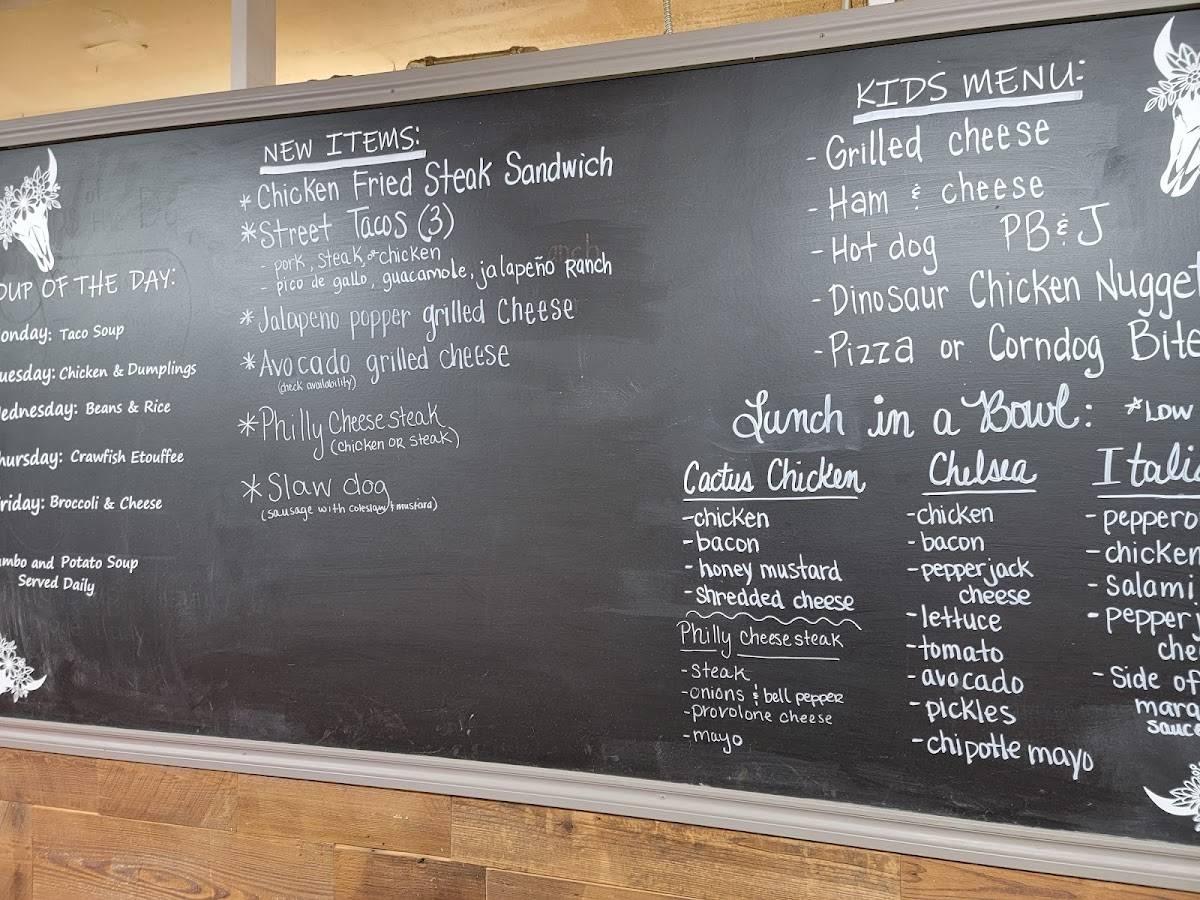 OUP OF THE DAY:
onday: Taco Soup
uesday: Chicken & Dumplings
ednesday: Beans & Rice
hursday: Crawfish Etouffee
riday: Broccoli & Cheese
umbo and Potato Soup
Served Daily
NEW ITEMS:
* Chicken Fried Steak Sandwich
* Street Tacos (3)
- pork, steak, or chicken
- pico de gallo, guacamole, jalapeño Ranch
* Jalapeno popper grilled Cheese
* Avocado grilled cheese
(check availability)
* Philly Cheesesteak
(chicken OR steak)
* Slaw dog
(sausage with coleslaw & mustard)
KIDS MENU:
- Grilled cheese
- Ham & cheese
- Hot dog PB & J
- Dinosaur Chicken Nugget
- Pizza or Corndog Bite
Lunch in a Bowl: *LOW
Cactus Chicken
- chicken
- bacon
- honey mustard
- shredded cheese
Philly cheesesteak
- steak
- onions & bell pepper
- provolone cheese
- mayo
Chelsea
- chicken
- bacon
- pepperjack
cheese
- lettuce
- tomato
- avocado
- pickles
- chipotle mayo
Italia
- peppero
- chicken
- Salami
- pepper
che
- Side of
mara
sauce